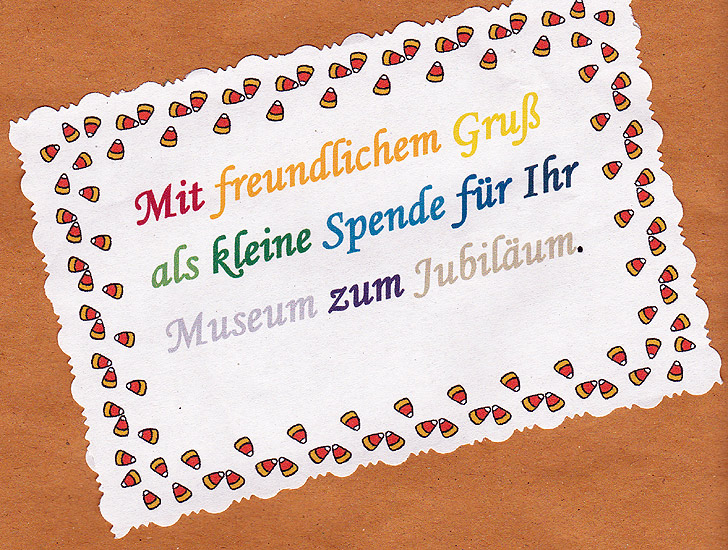 Mit freundlichem Gruß
als kleine Spende für Ihr
Museum zum Jubiläum.